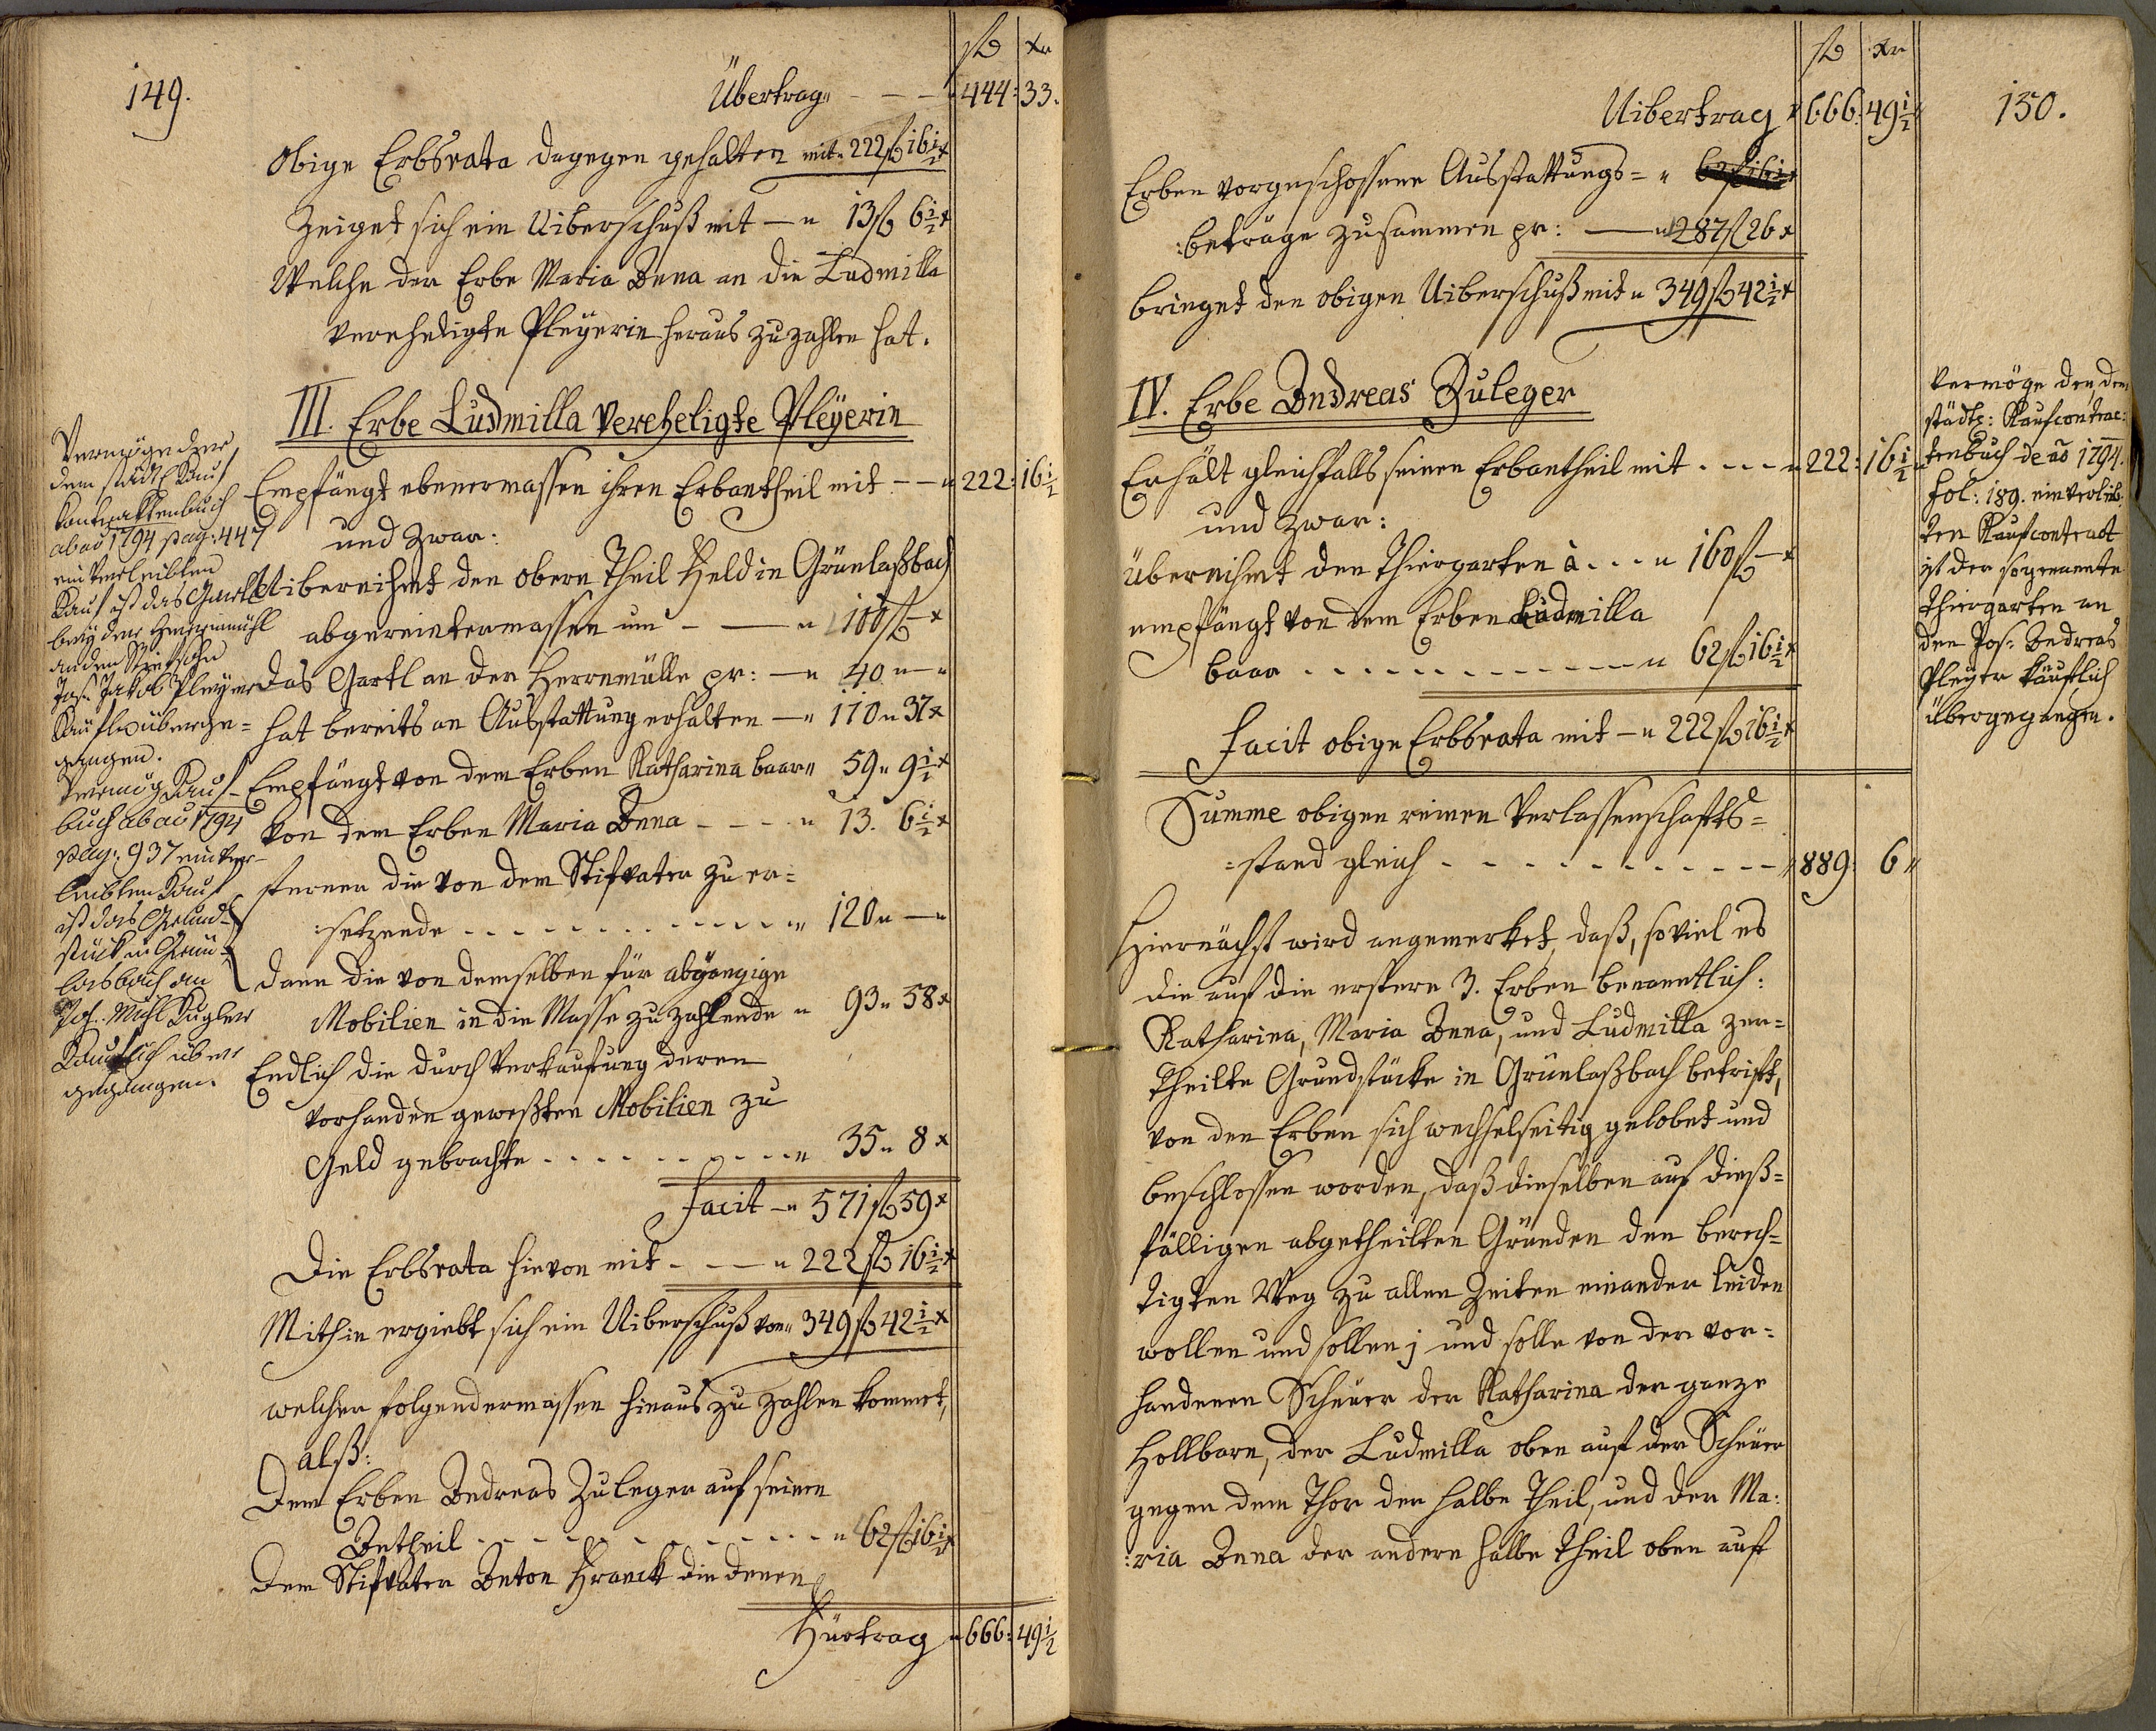 149.
fl xr
Übertrag „ - - - 444: 33.
Obige Erbsrata dagegen gehalten mit „ 222 fl 16 1/2 x
Zeiget sich ein Uiberschuß mit — „ 13 fl 6 1/2 x
Welche der Erbe Maria Anna an die Ludmilla
verehligte Pleyerin heraus zu zahlen hat.
III. Erbe Ludmilla Vereheligte Pleÿerin
Empfängt ebenermassen ihren Erbantheil mit - - „ 222: 16 1/2
und zwar:
Uibernihmt den obern Theil Feld in Grünlaßbach
abgereintermassen um - — „ 100 fl — x
das Gartl an der Herrnmülle pr: — „ 40 „ — „
hat bereits an Ausstattung erhalten — „ 110 „ 37 x
Empfängt von dem Erben Katharina baar „ 59 „ 9 1/2 x
von dem Erben Maria Anna - - - - „ 13. 6 1/2 x
ferner die von dem Stifvater zu er=
:setzende - - - - - - - - - - „ 120 „ — „
dann die von demselben für abgängige
Mobilien in die Masse zu zahlende „ 93 „ 58 x
Endlich die durch Verkaufung deren
vorhanden gewesten Mobilien zu
Geld gebrachte - - - - - - - - „ 35 „ 8 x
Facit — „ 571 fl 59 x
Die Erbsrata hievon mit - - — „ 222 fl 16 1/2 x
Mithin ergiebt sich ein Uiberschuß von „ 349 fl 42 1/2 x
welcher folgendermassen hinaus zu zahlen kommet,
alß:
Dem Erben Andreas Zuleger auf seinen
Antheil - - - - - - - - - - „ 62 fl 16 1/2 x
Dem Stifvater Anton Hranek die denen
Fürtrag „ 666: 49 1/2
Vermög der
dem städtl Kauf
Kontraktenbuch
ab ao 1794 pag: 447
einverleibten
Kauf ist das Gartl
bey der Herrnmühl
an den
Jos. Jakob Pleyer
Käufl überge=
gangen.
Vermög Kauf-
buch ab ao 1794
pag: 937 einver-
leibten Kauf
ist das Grund-
stück in Grün-
lasbach an
Jos. Michl Kugler
Käuflich über
gegangen.
fl xr
150.
Uibertrag „ 666: 49 1/2 „
Erben vorgeschossene Ausstattungs= „
:beträge zusammen pr: — „ 287 fl 26 x
bringet den obigen Uiberschuß mit „ 349 fl 42 1/2 x
IV. Erbe Andreas Zuleger
Erhält gleichfalls seinen Erbantheil mit - - - - „ 222: 16 1/2 „
und zwar:
Übernihmt den Thiergarten à - - - „ 160 fl — x
empfängt von dem Erben Ludmilla
baar - - - - - - - - - - „ 62 fl 16 1/2 x
Facit obige Erbsrata mit — „ 222 fl 16 1/2 x
Summe obigen reinen Verlassenschafts=
=stand gleich - - - - - - - - - - „ 889: 6 „
Hiernächst wird angemerket, daß, soviel es
die auf die erstere 3. Erben benanntlich:
Katharina, Maria Anna, und Ludmilla zer=
theilte Grundstücke in Grünlaßbach betrift,
von den Erben sich wechselseitig gelobet und
beschlossen worden, daß dieselben auf dieß=
fälligen abgetheilten Gründen den berech=
tigten Weg zu allen Zeiten einander leiden
wollen und sollen; und solle von der vor=
handenen Scheuer der Katharina der ganze
Hollbarn, der Ludmilla oben auf der Scheuer
gegen dem Thor der halbe Theil, und der Ma:
:ria Anna der andere halbe Theil oben auf
Vermöge den, dem
städtl: Kaufcontrac:
tenbuch de ao 1794.
Fol: 189. einverleib:
ten Kaufcontract
ist der sogenannte
Thiergarten an
den Jos: Andreas
Pleyer käuflich
übergegangen.